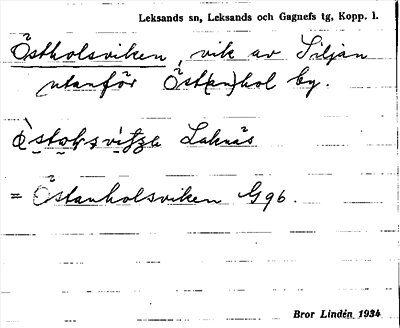 Leksands sn, Leksands och Gagnefs tg, Kopp. l.
Östholsviken, vik av Siljan
utanför Öst(an)hol by.
Laknäs
= Östanholsviken G96.
Bror Lindén 1934